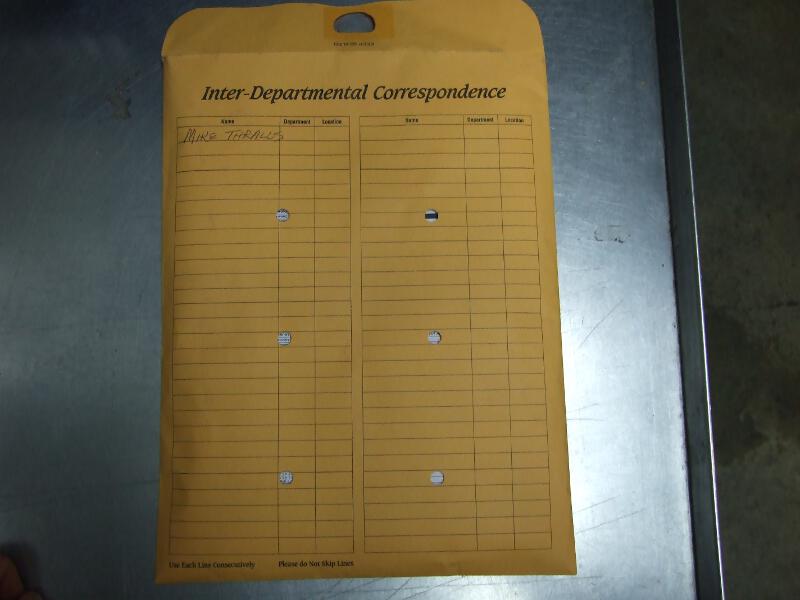 Inter-Departmental Correspondence
Name Department Location Name Department Location
MIKE THRALLS
Use Each Line Consecutively Please do Not Skip Lines